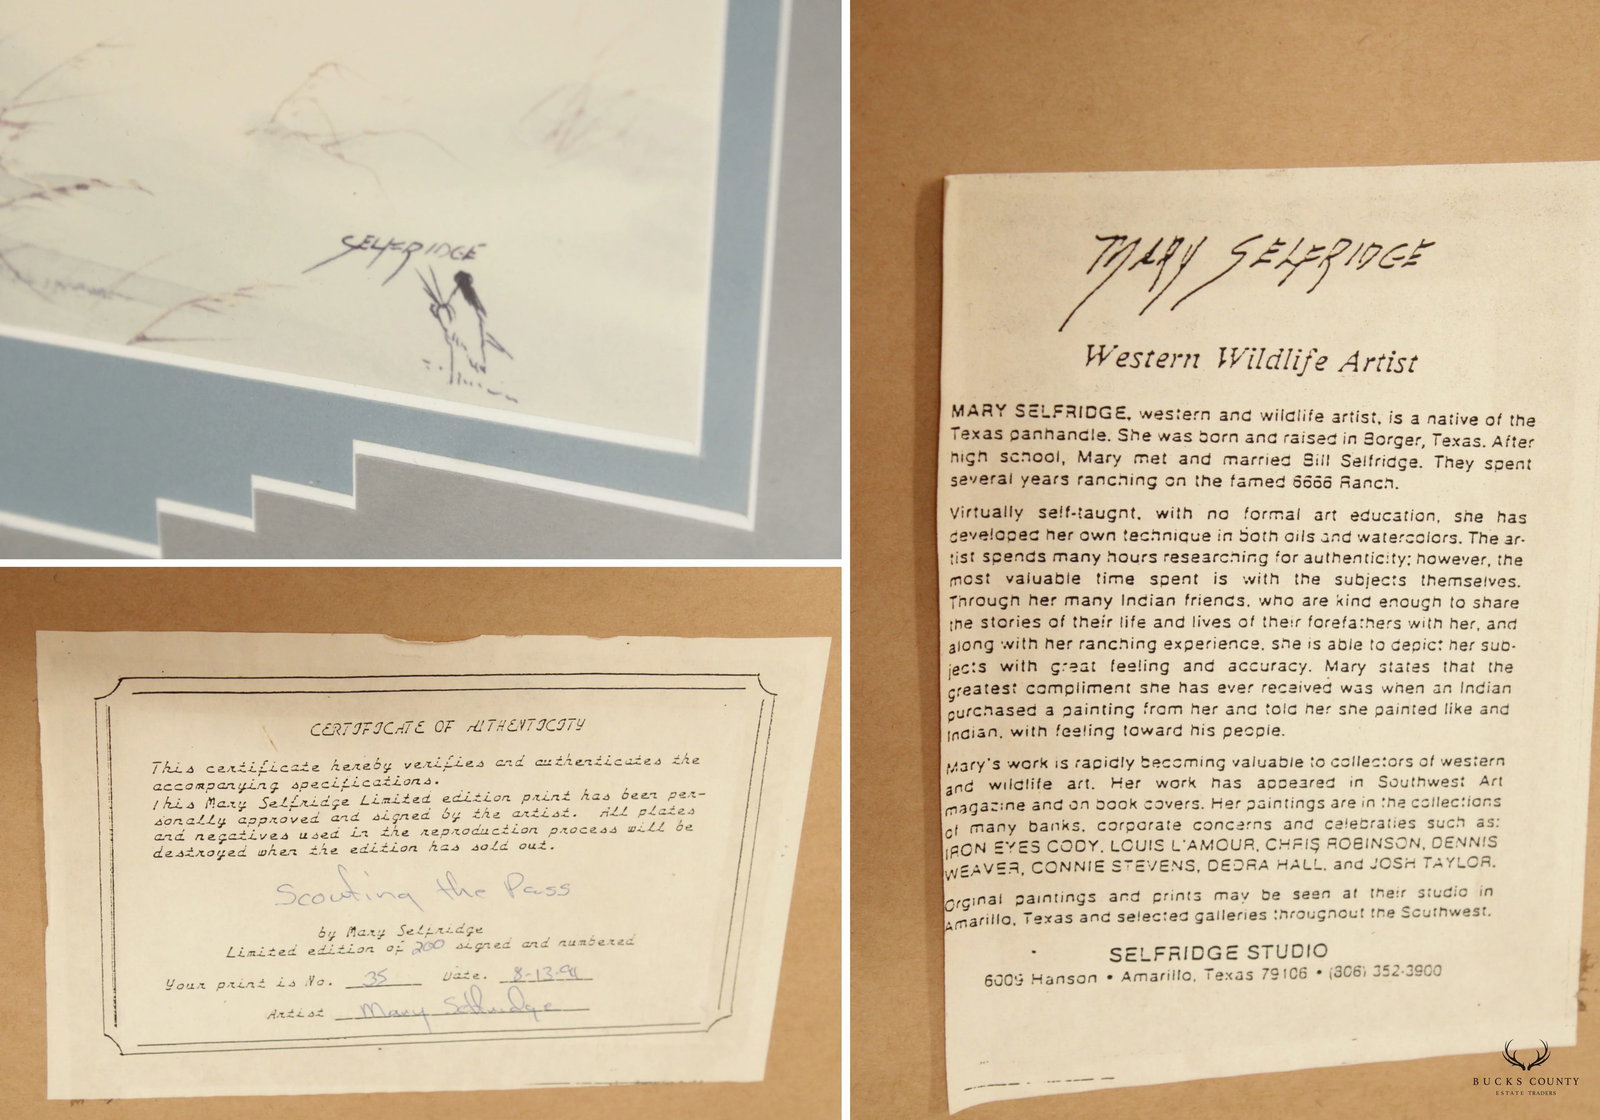 SELFRIDGE
CERTIFICATE OF AUTHENTICITY
This certificate hereby verifies and authenticates the
accompanying specifications.
This Mary Selfridge Limited edition print has been per-
sonally approved and signed by the artist. All plates
and negatives used in the reproduction process will be
destroyed when the edition has sold out.
Scouting the Pass
by Mary Selfridge
Limited edition of 200 signed and numbered
Your print is No. 35 Date. 8-13-91
Artist Mary Selfridge
MARY SELFRIDGE
Western Wildlife Artist
MARY SELFRIDGE, western and wildlife artist, is a native of the
Texas panhandle. She was born and raised in Borger, Texas. After
high school, Mary met and married Bill Selfridge. They spent
several years ranching on the famed 6666 Ranch.
Virtually self-taught, with no formal art education, she has
developed her own technique in both oils and watercolors. The ar-
tist spends many hours researching for authenticity; however, the
most valuable time spent is with the subjects themselves.
Through her many Indian friends, who are kind enough to share
the stories of their life and lives of their forefathers with her, and
along with her ranching experience, she is able to depict her sub-
jects with great feeling and accuracy. Mary states that the
greatest compliment she has ever received was when an Indian
purchased a painting from her and told her she painted like and
Indian, with feeling toward his people.
Mary's work is rapidly becoming valuable to collectors of western
and wildlife art. Her work has appeared in Southwest Art
magazine and on book covers. Her paintings are in the collections
of many banks, corporate concerns and celebraties such as:
IRON EYES CODY, LOUIS L'AMOUR, CHRIS ROBINSON, DENNIS
WEAVER, CONNIE STEVENS, DEDRA HALL, and JOSH TAYLOR.
Orginal paintings and prints may be seen at their studio in
Amarillo, Texas and selected galleries throughout the Southwest.
SELFRIDGE STUDIO
6009 Hanson • Amarillo, Texas 79106 • (806) 352-3900
BUCKS COUNTY
ESTATE TRADERS